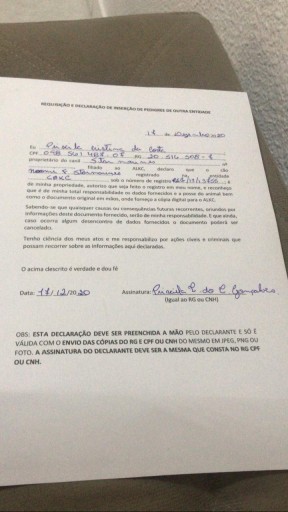 REQUISIÇÃO E DECLARAÇÃO DE INSERÇÃO DE PEDIGREE DE OUTRA ENTIDADE
Dezembro 2020
Eu Priscila Cristina da Costa
CPF RG
proprietário do canil
filiado ao ALKC, declaro que o cão
registrado na entidade
CBKC sob o número de registro
de minha propriedade, autorizo que seja feito o registro em meu nome, e reconheço
que é de minha total responsabilidade os dados fornecidos e a posse do animal bem
como o documento original em mãos, onde forneço a cópia digital para o ALKC.
Sabendo-se que quaisquer causas ou consequências futuras recorrentes, oriundas por
informações deste documento fornecido, serão de minha responsabilidade. E que ainda,
caso ocorra algum desencontro de dados fornecidos o documento poderá ser
cancelado.
Tenho ciência dos meus atos e me responsabilizo por ações cíveis e criminas que
possam recorrer sobre as informações aqui declaradas.
O acima descrito é verdade e dou fé
Data: 17/12/2020 Assinatura: Priscila C. da C. Gonçalves
(Igual ao RG ou CNH)
OBS: ESTA DECLARAÇÃO DEVE SER PREENCHIDA A MÃO PELO DECLARANTE E SÓ É
VÁLIDA COM O ENVIO DAS CÓPIAS DO RG E CPF OU CNH DO MESMO EM JPEG, PNG OU
FOTO. A ASSINATURA DO DECLARANTE DEVE SER A MESMA QUE CONSTA NO RG CPF
OU CNH.